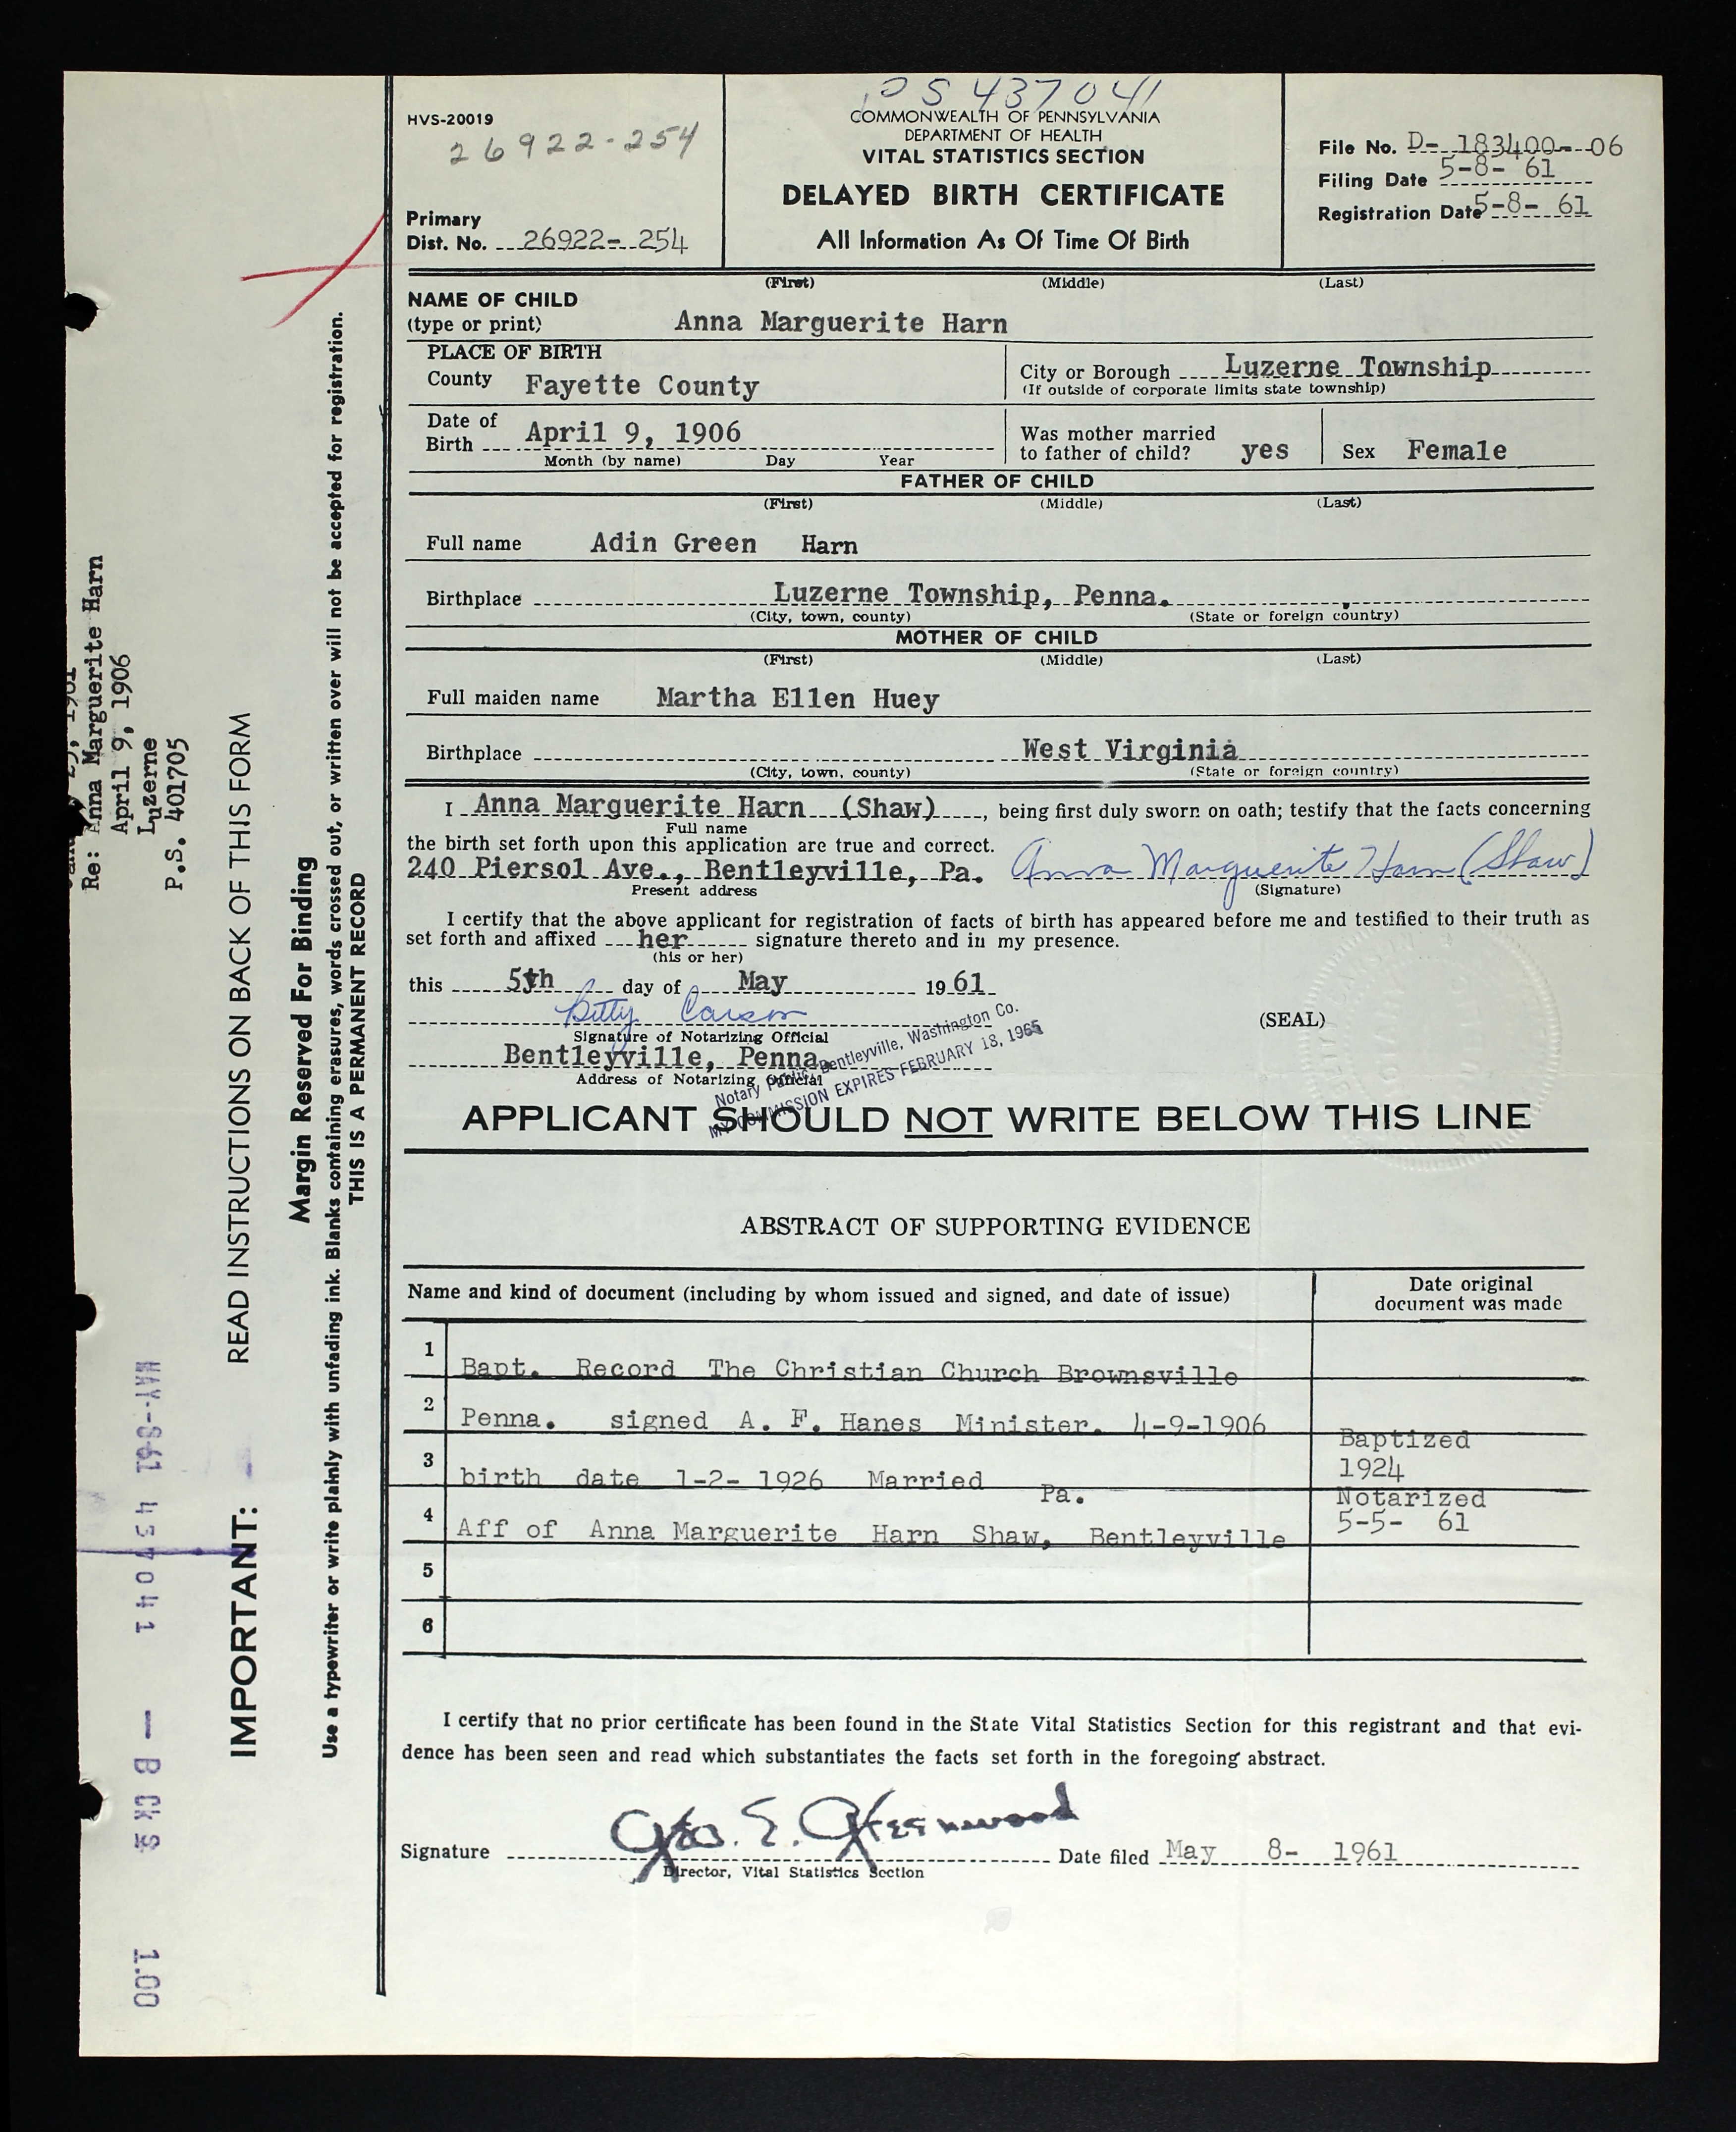 PS 437041
HVS-20019
26922-254
COMMONWEALTH OF PENNSYLVANIA
DEPARTMENT OF HEALTH
VITAL STATISTICS SECTION
DELAYED BIRTH CERTIFICATE
All Information As Of Time Of Birth
Primary
Dist. No. 26922- 254
File No. D- 183400- -06
Filing Date 5-8- 61
Registration Date 5-8- 61
(First) (Middle) (Last)
NAME OF CHILD
(type or print) Anna Marguerite Harn
PLACE OF BIRTH
County Fayette County
City or Borough Luzerne Township
(If outside of corporate limits state township)
Date of
Birth April 9, 1906
Month (by name) Day Year
Was mother married
to father of child? yes
Sex Female
FATHER OF CHILD
(First) (Middle) (Last)
Full name Adin Green Harn
Birthplace Luzerne Township, Penna.
(City, town, county) (State or foreign country)
MOTHER OF CHILD
(First) (Middle) (Last)
Full maiden name Martha Ellen Huey
Birthplace West Virginia
(City, town, county) (State or foreign country)
I Anna Marguerite Harn (Shaw), being first duly sworn on oath; testify that the facts concerning
Full name
the birth set forth upon this application are true and correct.
240 Piersol Ave., Bentleyville, Pa. Anna Marguerite Harn (Shaw)
Present address (Signature)
I certify that the above applicant for registration of facts of birth has appeared before me and testified to their truth as
set forth and affixed her signature thereto and in my presence.
(his or her)
this 5th day of May 1961
Betty Carson
Signature of Notarizing Official
(SEAL)
Bentleyville, Penna.
Address of Notarizing Official
Notary Public, Bentleyville, Washington Co.
MY COMMISSION EXPIRES FEBRUARY 18, 1965
APPLICANT SHOULD NOT WRITE BELOW THIS LINE
ABSTRACT OF SUPPORTING EVIDENCE
Name and kind of document (including by whom issued and signed, and date of issue)
Date original
document was made
1 Bapt. Record The Christian Church Brownsville
2 Penna. signed A. F. Hanes Minister. 4-9-1906
Baptized
3 birth date 1-2- 1926 Married
1924
Pa.
Notarized
4 Aff of Anna Marguerite Harn Shaw, Bentleyville
5-5- 61
5
6
I certify that no prior certificate has been found in the State Vital Statistics Section for this registrant and that evi-
dence has been seen and read which substantiates the facts set forth in the foregoing abstract.
Signature Geo. E. Greenwood
Director, Vital Statistics Section
Date filed May 8- 1961
Re: Anna Marguerite Harn
April 9, 1906
Luzerne
P.S. 401705
IMPORTANT: READ INSTRUCTIONS ON BACK OF THIS FORM
Margin Reserved For Binding
Use a typewriter or write plainly with unfading ink. Blanks containing erasures, words crossed out, or written over will not be accepted for registration.
THIS IS A PERMANENT RECORD
MAY--8-61 437041 — B CK $ 1.00